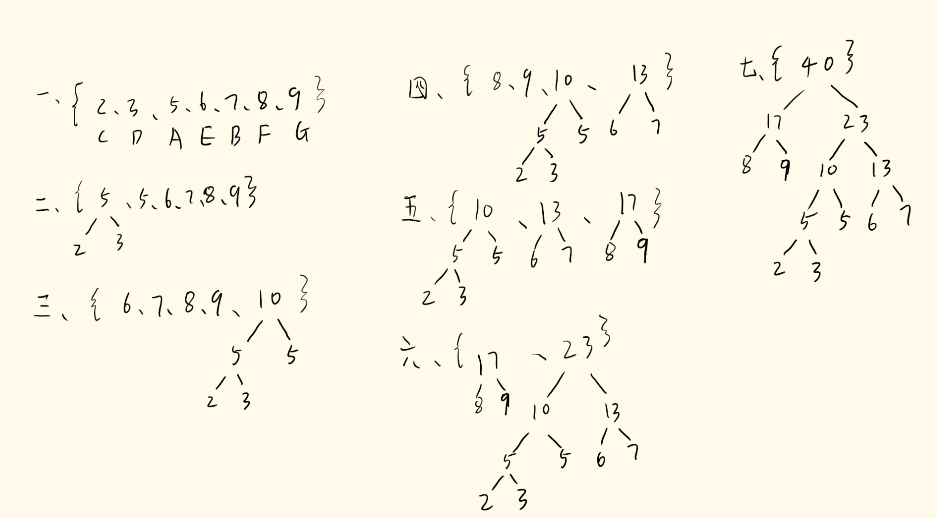 一、{ 2、3、5、6、7、8、9 }
C D A E B F G
二、{ 5、5、6、7、8、9 }
2 3
三、{ 6、7、8、9、10 }
5 5
2 3
四、{ 8、9、10、13 }
5 5 6 7
2 3
五、{ 10、13、17 }
5 5 6 7 8 9
2 3
六、{ 17、23 }
8 9 10 13
5 5 6 7
2 3
七、{ 40 }
17 23
8 9 10 13
5 5 6 7
2 3